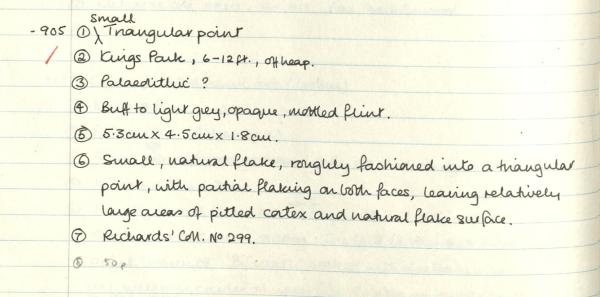 small
-905 ① ⁁ Triangular point
② Kings Park, 6-12ft., off heap.
③ Palaeolithic ?
④ Buff to light grey, opaque, mottled flint.
⑤ 5.3cm x 4.5cm x 1.8cm.
⑥ Small, natural flake, roughly fashioned into a triangular
point, with partial flaking on both faces, leaving relatively
large areas of pitted cortex and natural flake surface.
⑦ Richards' Coll. No 299.
⑧ 50p